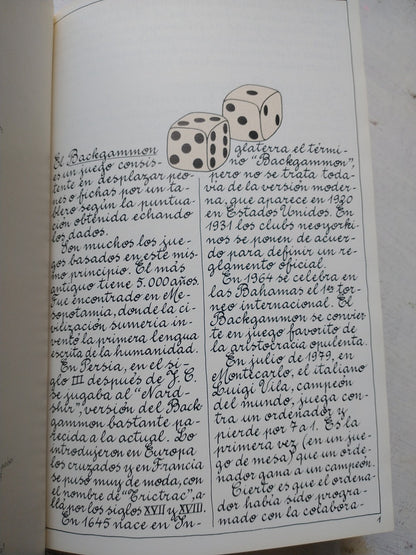 El Backgammon
es un juego consis-
tente en desplazar peo-
nes o fichas por un ta-
blero según la puntua-
ción obtenida echando
los dados.
Son muchos los jue-
gos basados en este mis-
mo principio. El más
antiguo tiene 5.000 años.
Fue encontrado en Me-
sopotamia, donde la ci-
vilización sumeria in-
ventó la primera lengua
escrita de la humanidad.
En Persia, en el si-
glo III después de J.C.
se jugaba al "Nard-
shir", versión del Back
gammon bastante pa-
recida a la actual. Lo
introdujeron en Europa
los cruzados y en Francia
se puso muy de moda, con
el nombre de "Trictrac", a-
llá por los siglos XVII y XVIII.
En 1645 nace en In-
glaterra el térmi-
no "Backgammon",
pero no se trata toda-
vía de la versión moder-
na, que aparece en 1920
en Estados Unidos. En
1931 los clubs neoyorki-
nos se ponen de acuer-
do para definir un re-
glamento oficial.
En 1964 se celebra en
las Bahamas el 1er tor-
neo internacional. El
Backgammon se convier-
te en juego favorito de
la aristocracia opulenta.
En julio de 1979, en
Montecarlo, el italiano
Luigi Vila, campeón
del mundo, juega con-
tra un ordenador y
pierde por 7 a 1. Es la
primera vez (en un jue-
go de mesa) que un orde-
nador gana a un campeón.
Cierto es que el ordena-
dor había sido progra-
mado con la colabora-
1